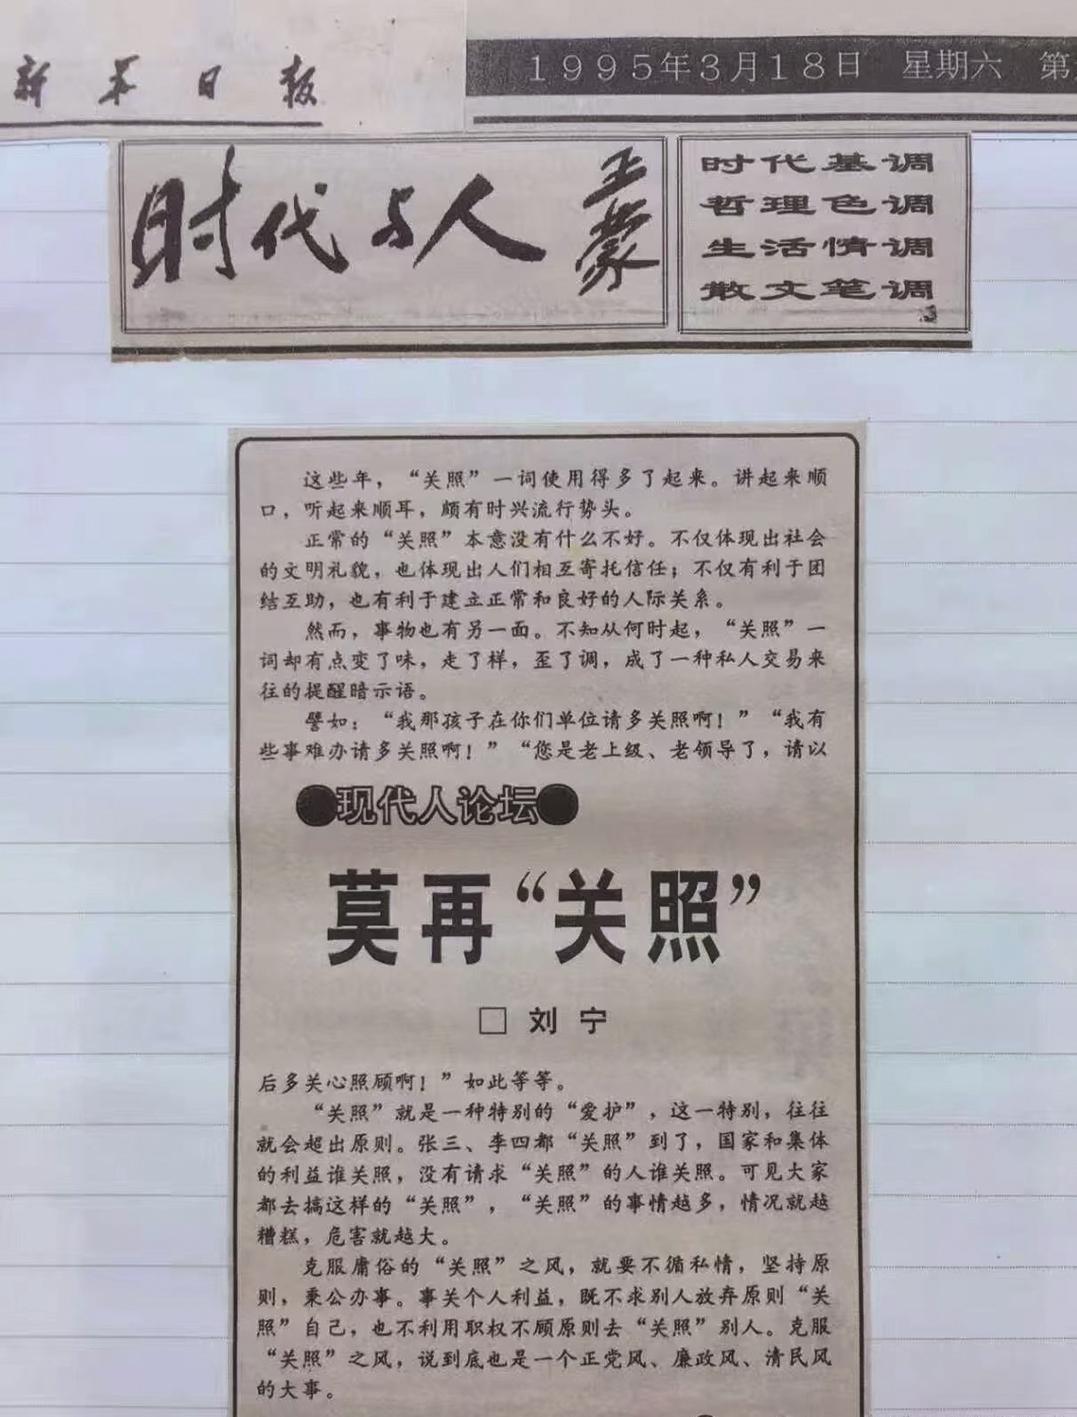 新华日报
1995年3月18日 星期六 第
时代与人 王蒙
时代基调
哲理色调
生活情调
散文笔调
这些年，“关照”一词使用得多了起来。讲起来顺
口，听起来顺耳，颇有时兴流行势头。
正常的“关照”本意没有什么不好。不仅体现出社会
的文明礼貌，也体现出人们相互寄托信任；不仅有利于团
结互助，也有利于建立正常和良好的人际关系。
然而，事物也有另一面。不知从何时起，“关照”一
词却有点变了味，走了样，歪了调，成了一种私人交易来
往的提醒暗示语。
譬如：“我那孩子在你们单位请多关照啊！”“我有
些事难办请多关照啊！”“您是老上级、老领导了，请以
●现代人论坛●
莫再“关照”
□ 刘宁
后多关心照顾啊！”如此等等。
“关照”就是一种特别的“爱护”，这一特别，往往
就会超出原则。张三、李四都“关照”到了，国家和集体
的利益谁关照，没有请求“关照”的人谁关照。可见大家
都去搞这样的“关照”，“关照”的事情越多，情况就越
糟糕，危害就越大。
克服庸俗的“关照”之风，就要不循私情，坚持原
则，秉公办事。事关个人利益，既不求别人放弃原则“关
照”自己，也不利用职权不顾原则去“关照”别人。克服
“关照”之风，说到底也是一个正党风、廉政风、清民风
的大事。